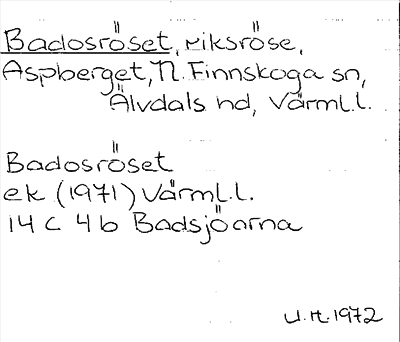 Badosröset, riksröse,
Aspberget, N. Finnskoga sn,
Älvdals hd, Värml.l.
Badosröset
ek (1971) Värml.l.
14 C 4b Badsjöarna
U.H. 1972